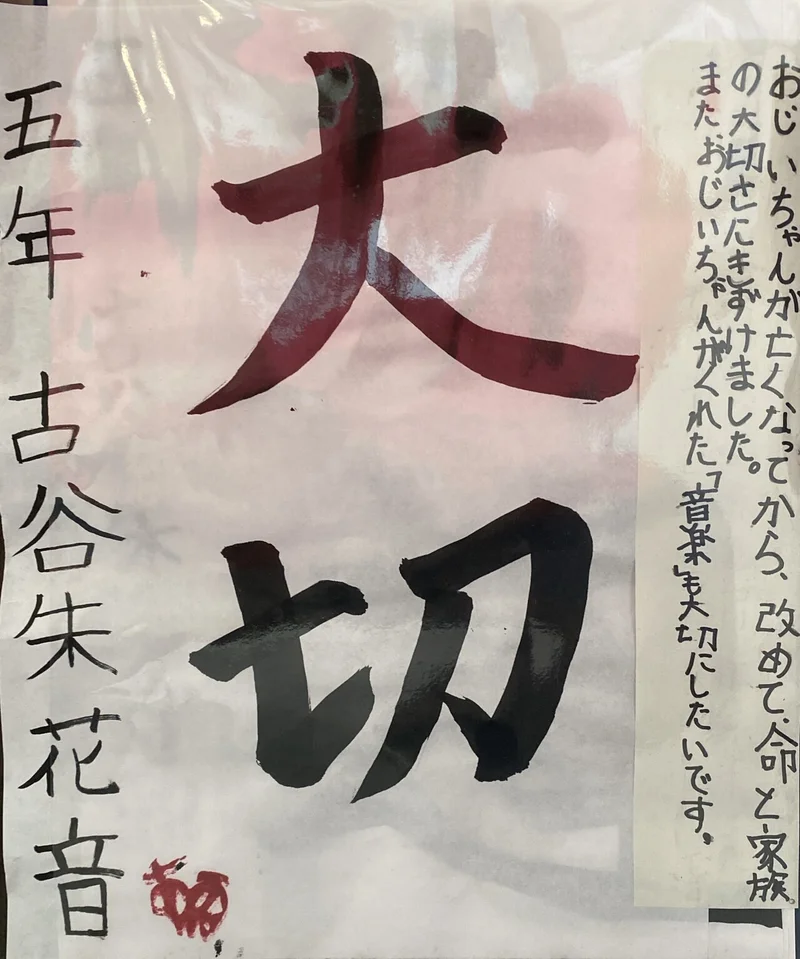 おじいちゃんが亡くなってから、改めて、命と家族
の大切さにきずけました。
また、おじいちゃんがくれた「音楽」も大切にしたいです。
大切
五年 古谷朱花音